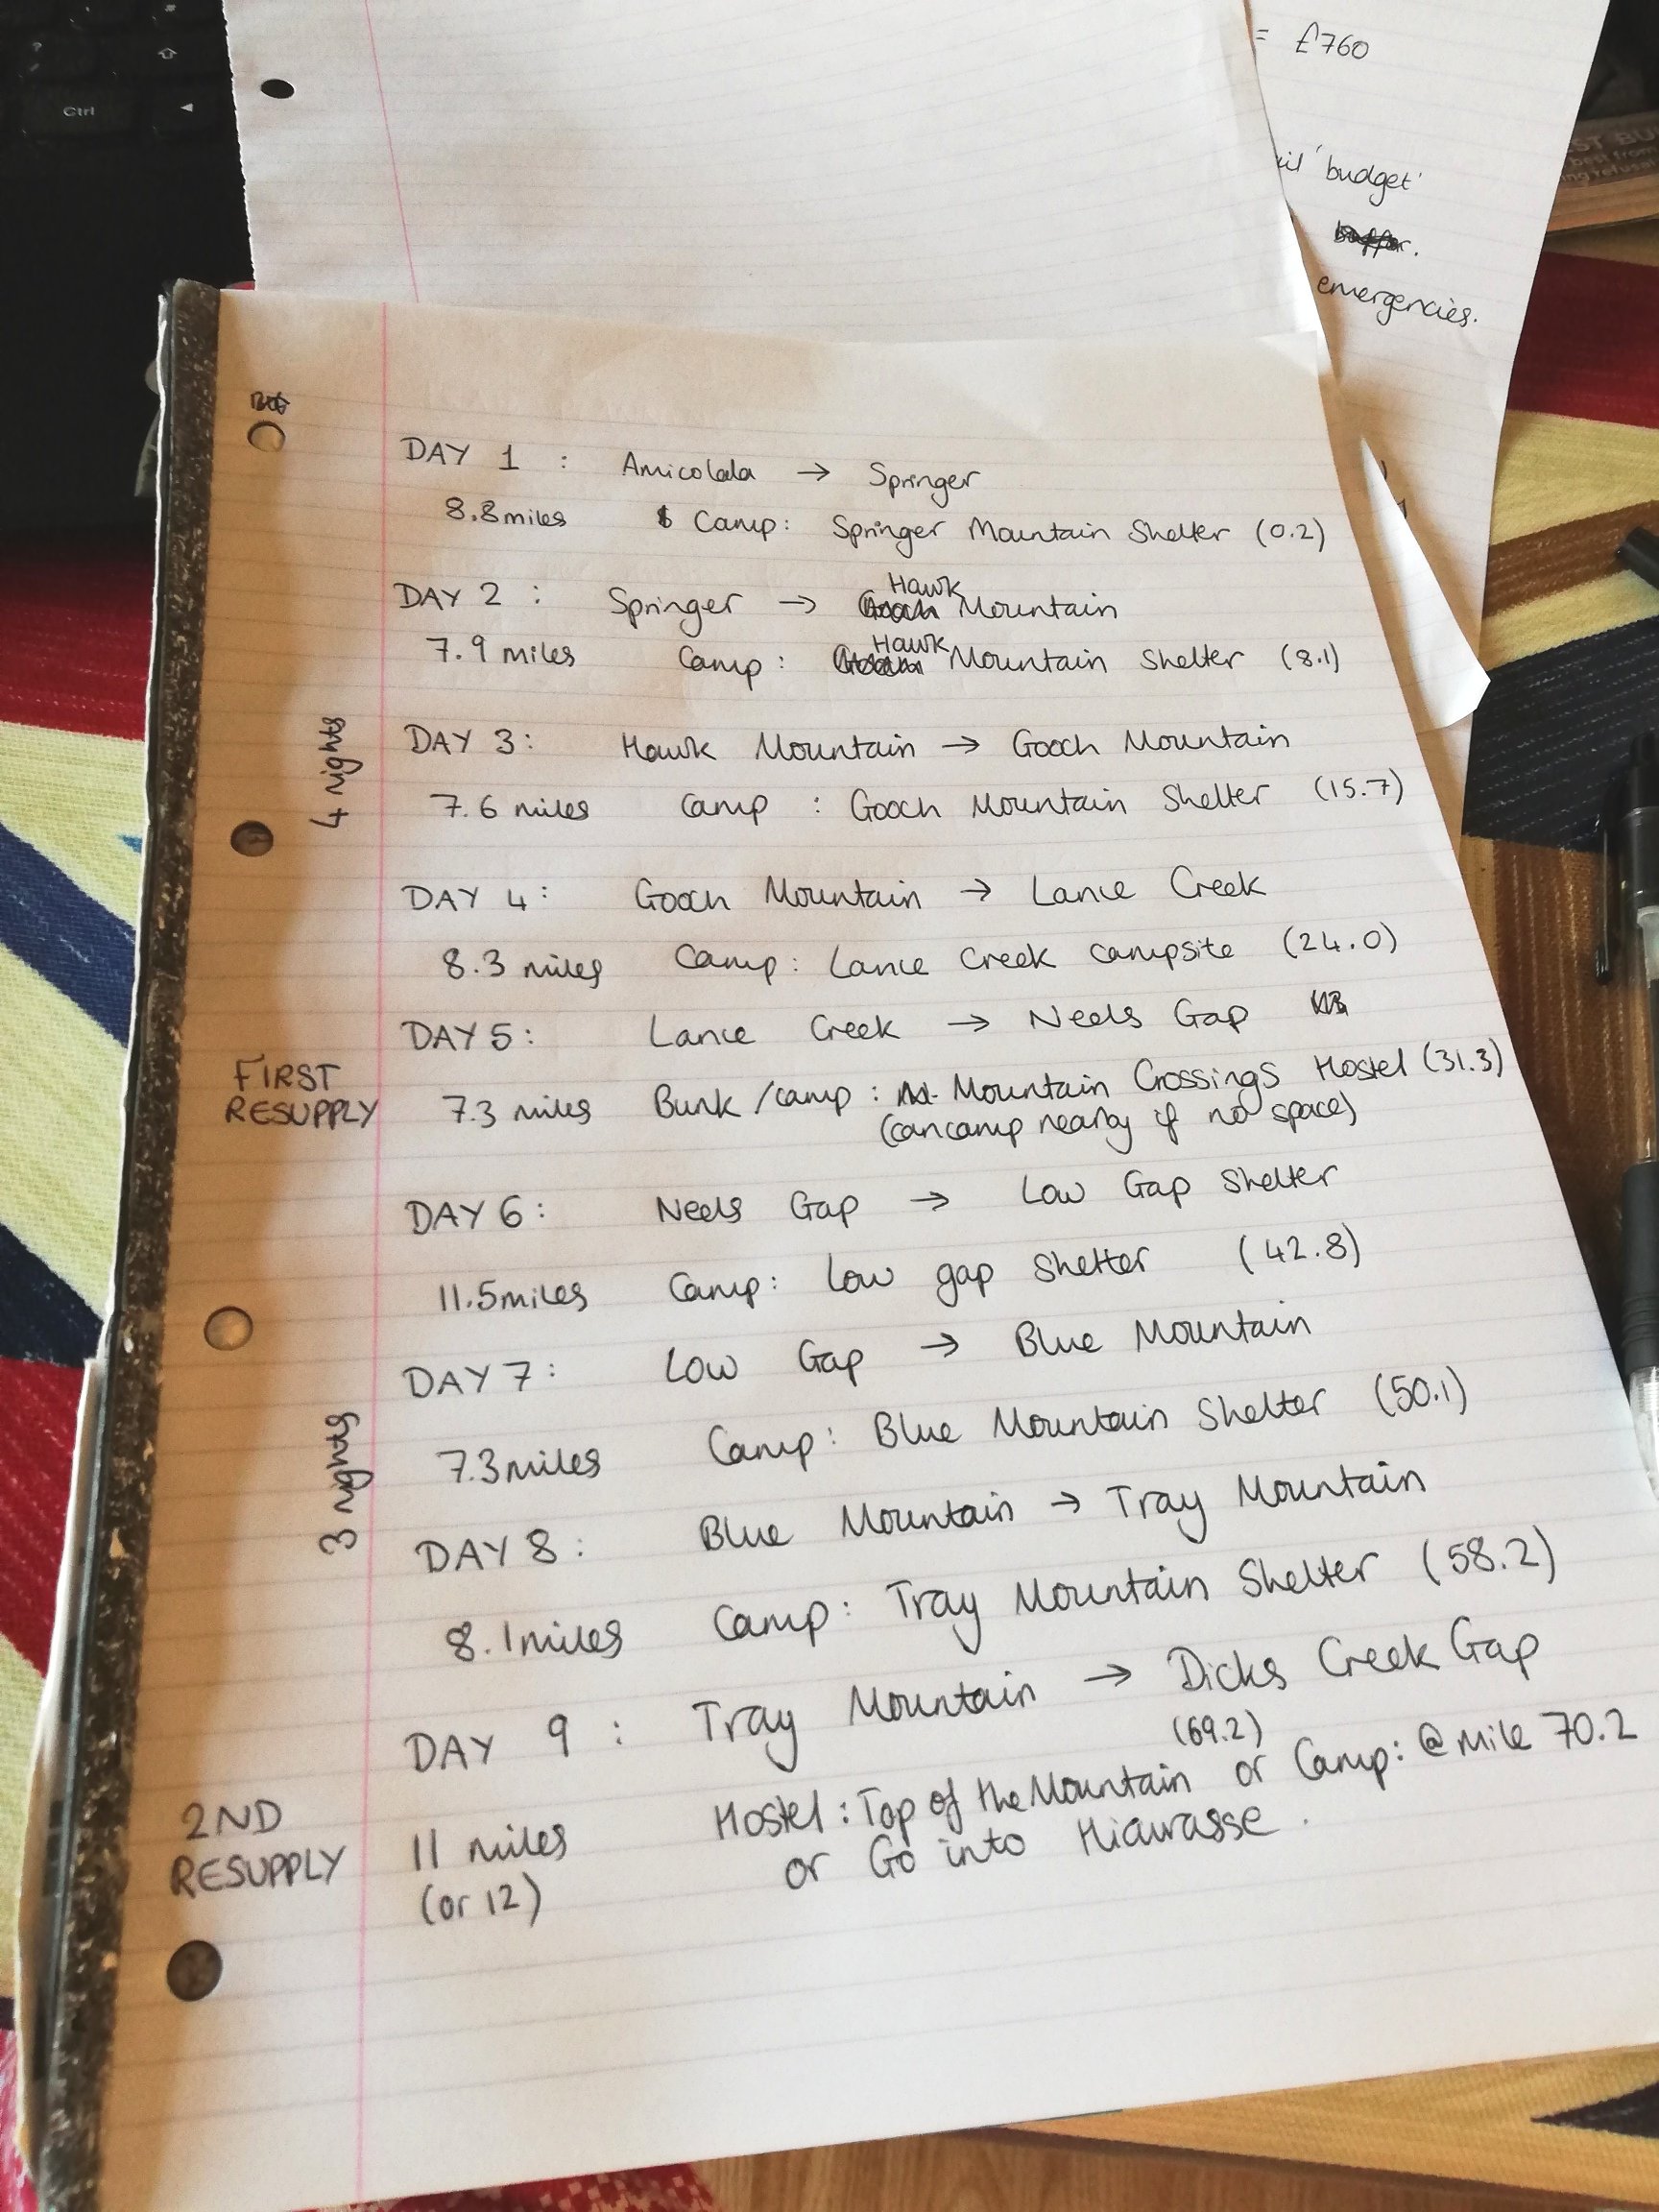 Ctrl
= £760
'budget'
emergencies.
DAY 1 : Amicolala → Springer
8.8miles Camp: Springer Mountain Shelter (0.2)
DAY 2 : Springer → Hawk Mountain
7.9 miles Camp : Hawk Mountain Shelter (8.1)
4 nights
DAY 3 : Hawk Mountain → Gooch Mountain
7.6 miles Camp : Gooch Mountain Shelter (15.7)
DAY 4 : Gooch Mountain → Lance Creek
8.3 miles Camp : Lance Creek campsite (24.0)
DAY 5 : Lance Creek → Neels Gap
FIRST
RESUPPLY
7.3 miles Bunk/camp : Mountain Crossings Hostel (31.3)
(can camp nearby if no space)
DAY 6 : Neels Gap → Low Gap Shelter
11.5miles Camp: Low gap Shelter (42.8)
DAY 7 : Low Gap → Blue Mountain
7.3miles Camp: Blue Mountain Shelter (50.1)
3 nights
DAY 8 : Blue Mountain → Tray Mountain
8.1miles Camp: Tray Mountain Shelter (58.2)
DAY 9 : Tray Mountain → Dicks Creek Gap
(69.2)
2ND
RESUPPLY
11 miles Hostel : Top of the Mountain or Camp: @ Mile 70.2
(or 12) or Go into Hiawasse.